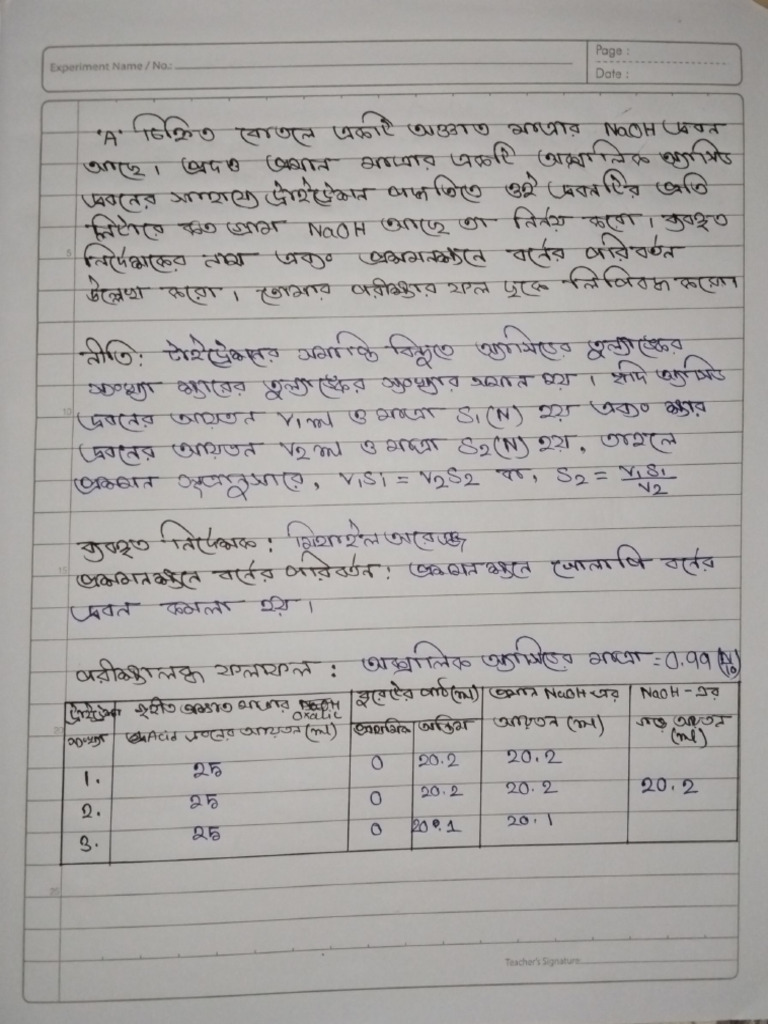 Experiment Name / No.:
Page :
Date :
'A' চিহ্নিত বোতলে একটি অজ্ঞাত মাত্রার NaOH দ্রবন
আছে। প্রদত্ত প্রমান মাত্রার একটি অক্সালিক অ্যাসিড
দ্রবনের সাহায্যে টাইট্রেশন পদ্ধতিতে ওই দ্রবনটির প্রতি
লিটারে কত গ্রাম NaOH আছে তা নির্নয় করো। ব্যবহৃত
নির্দেশকের নাম এবং প্রশমনক্ষনে বর্নের পরিবর্তন
উল্লেখ করো। তোমার পরীক্ষার ফল ছকে লিপিবদ্ধ করো।
নীতি: টাইট্রেশনের সমাপ্তি বিন্দুতে অ্যাসিডের তুল্যাঙ্কের
সংখ্যা ক্ষারের তুল্যাঙ্কের সংখ্যার সমান হয়। যদি অ্যাসিড
দ্রবনের আয়তন V₁ ml ও মাত্রা S₁(N) হয় এবং ক্ষার
দ্রবনের আয়তন V₂ ml ও মাত্রা S₂(N) হয়, তাহলে
প্রশমন সূত্রানুসারে, V₁S₁ = V₂S₂ বা, S₂ = V₁S₁/V₂
ব্যবহৃত নির্দেশক : মিথাইল অরেঞ্জ
প্রশমনক্ষনে বর্নের পরিবর্তন : প্রশমনক্ষনে গোলাপি বর্নের
দ্রবন কমলা হয়।
পরীক্ষালব্ধ ফলাফল : অক্সালিক অ্যাসিডের মাত্রা = 0.99 (N/10)
টাইট্রেশন সংখ্যা গৃহীত অজ্ঞাত মাত্রার Oxalic Acid দ্রবনের আয়তন (ml) বুরেটের পাঠ (ml) প্রাথমিক অন্তিম প্রশম NaOH-এর আয়তন (ml) NaOH-এর গড় আয়তন (ml)
1. 25 0 20.2 20.2
2. 25 0 20.2 20.2 20.2
3. 25 0 20.1 20.1
Teacher's Signature